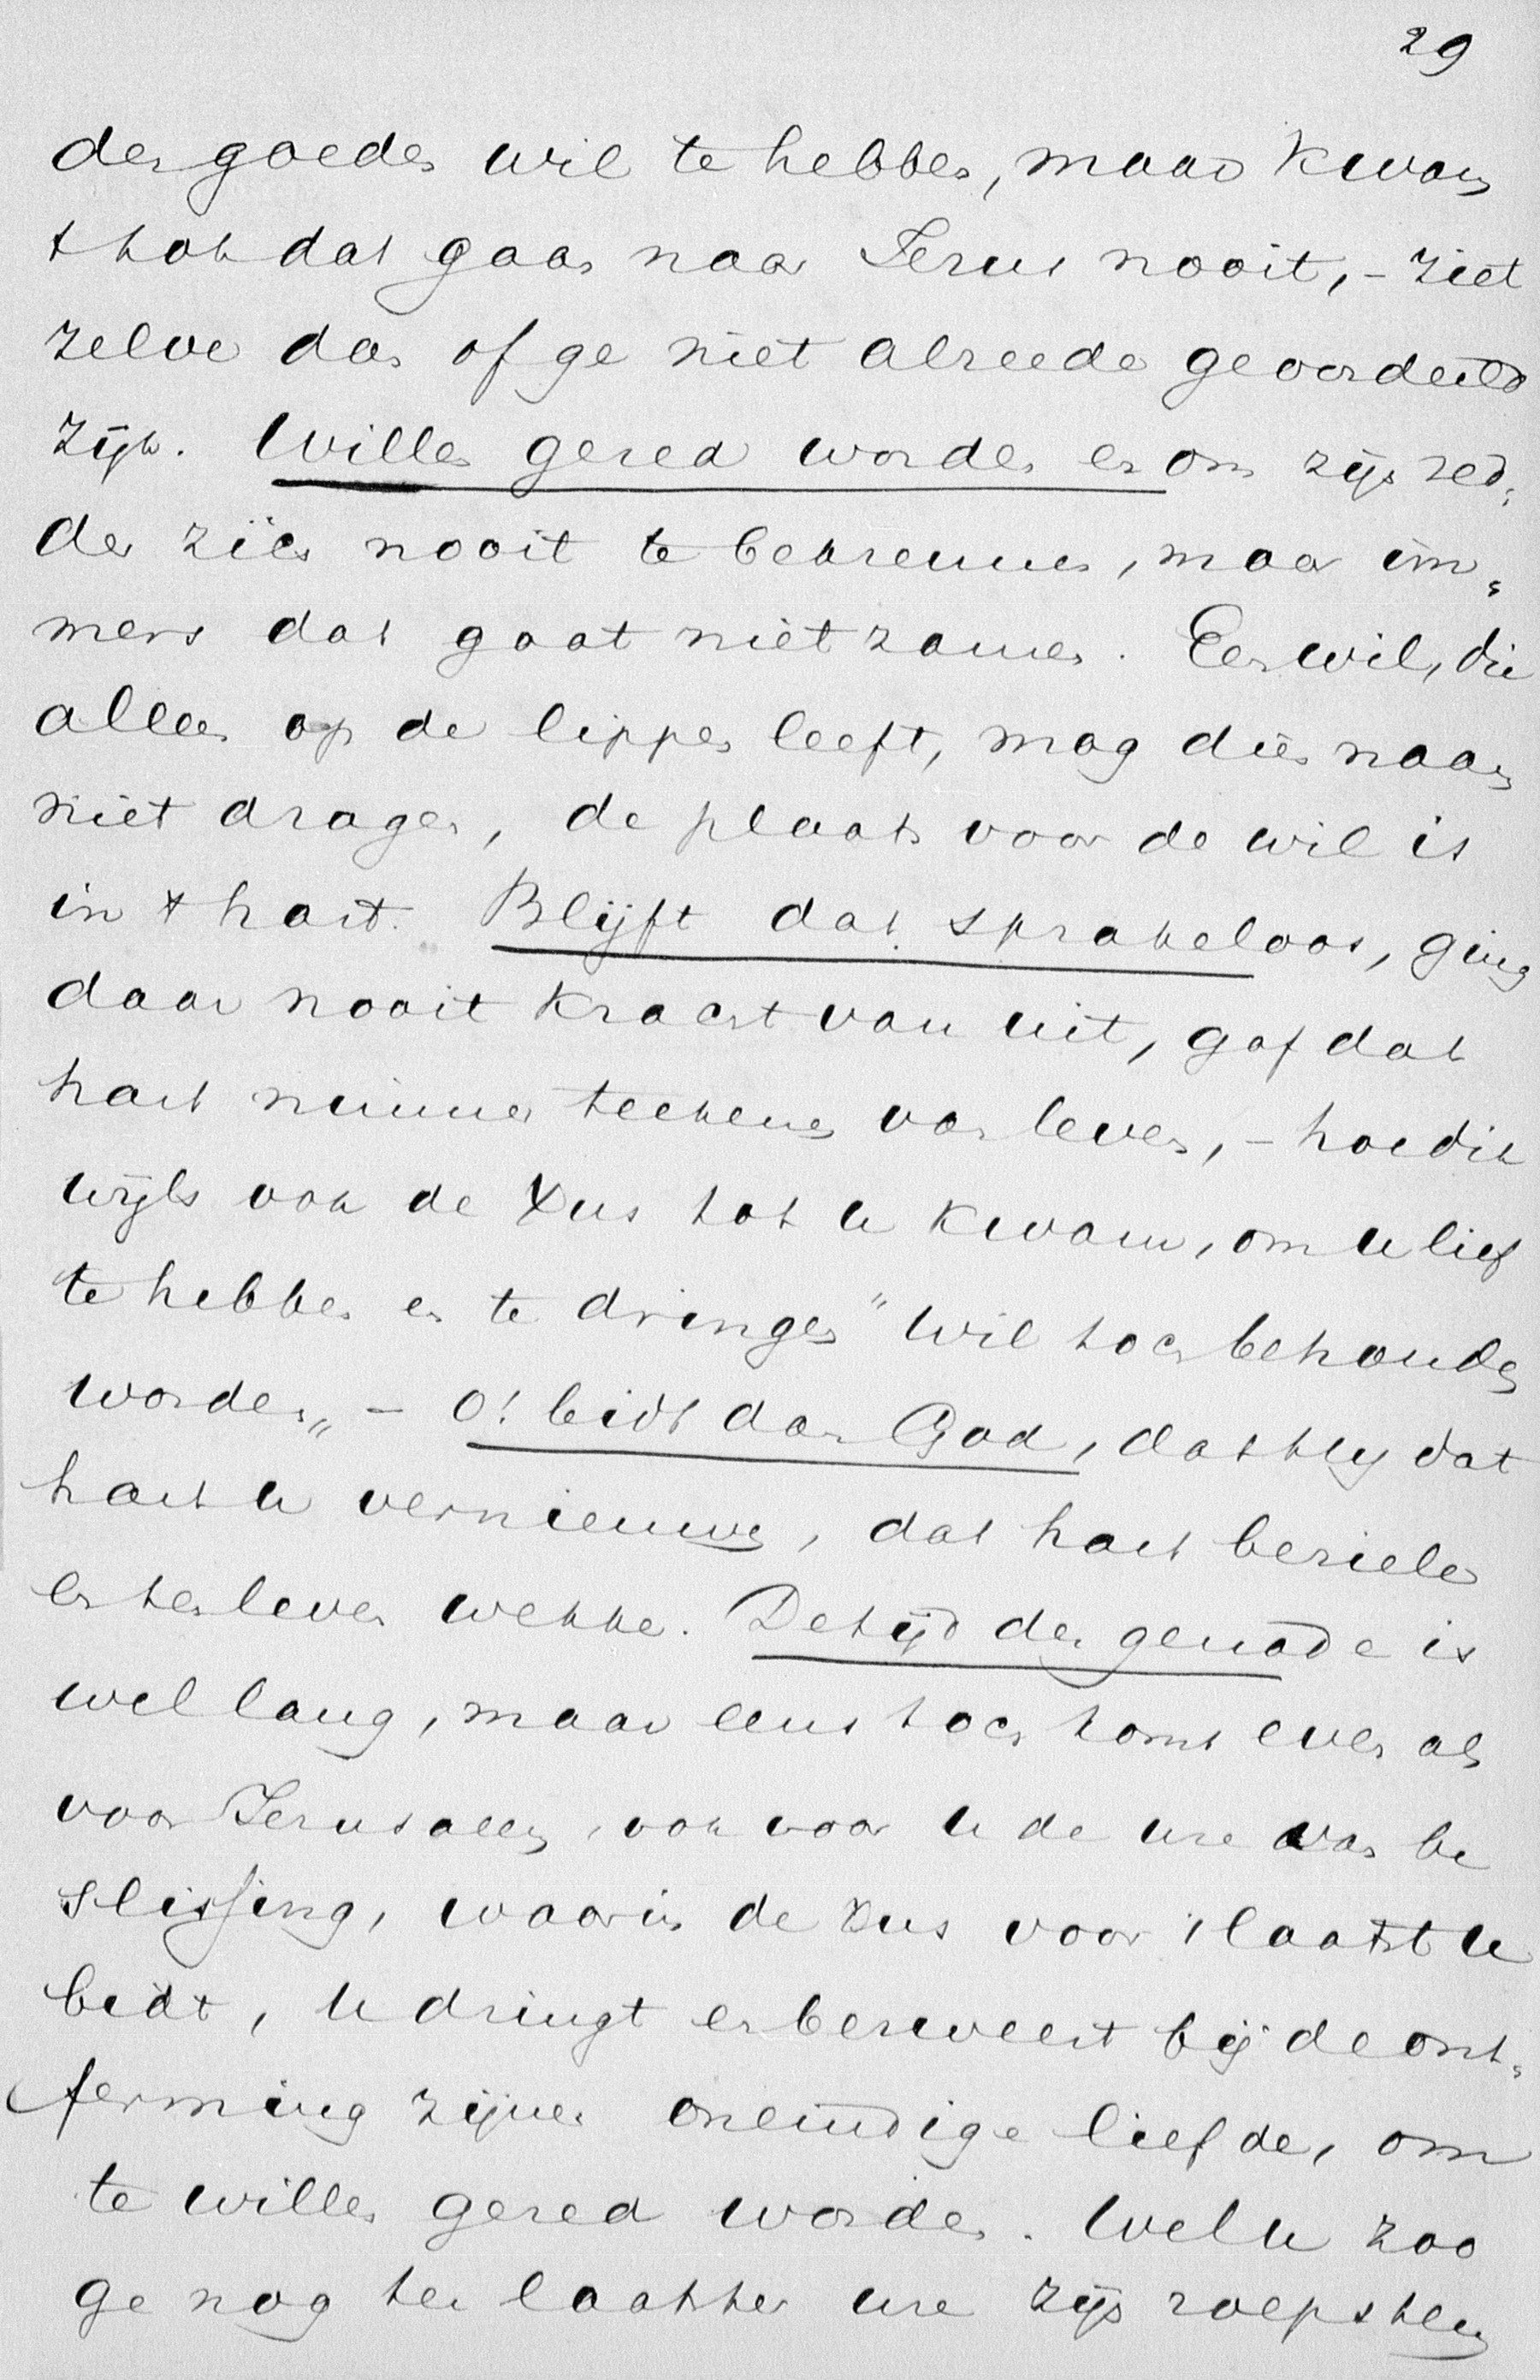 29
den goeden wil te hebben, maar kwam
't tot dat gaan naar Jezus nooit, – ziet
zelve dan of ge niet alreede geoordeeld
zijt. Willen gered worden en om zijn red„
der zich nooit te bekreunen, maar im„
mers dat gaat niet zamen. Een wil, die
alleen op de lippen leeft, mag dien naam
niet dragen, de plaats voor de wil is
in 't hart. Blijft dat sprakeloos, ging
daar nooit kracht van uit, gaf dat
hart nimmer teekenen van leven, – hoe dik
wijls ook de Xus tot u kwam, om u lief
te hebben en te dringen "wil toch behouden
worden„ – O! bidt dan God, dat hij dat
hart u vernieuwe, dat hart beziele
en ten leven wekke. De tijd der genade is
wel lang, maar eens toch komt even als
voor Jeruzalem, ook voor u de ure van be
slissing, waarin de Xus voor 't laatst u
bidt, u dringt en bezweert bij de ont„
ferming zijner oneindige liefde, om
te willen gered worden. Wel u zoo
ge nog ter laatster ure zijn roepstem